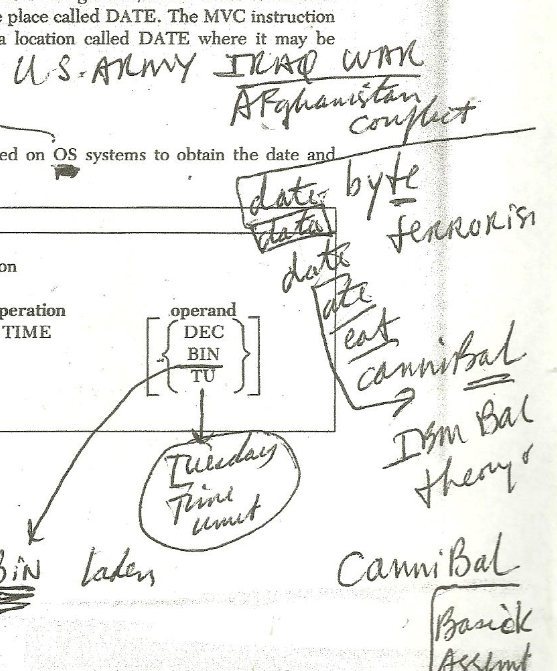 place called DATE. The MVC instruction
a location called DATE where it may be
U.S. ARMY IRAQ WAR
Afghanistan
conflict
ed on OS systems to obtain the date and
date byte
data terrorism
date
on
ate
peration operand
TIME DEC
eat
BIN
canniBal
TU
IBM Bal
theory
Tuesday
Time
unit
BIN laden
CanniBal
Basic